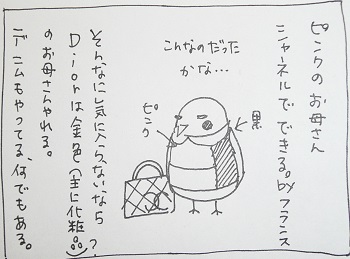 ピンクのお母さん
シャネルでできる。byフランス
こんなのだった
かな…
黒
ピンク
そんなに気に入らないなら?
Diorは金色(主に化粧品)
のお母さんやれる。
デニムもやってる、何でもある。